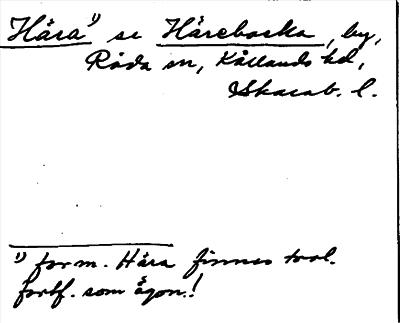 Håra¹⁾ se Härebacka, by,
Råda sn, Kållands hd,
Skarab. l.
¹⁾ form. Håra finnes trol.
fortf. som ägon.!